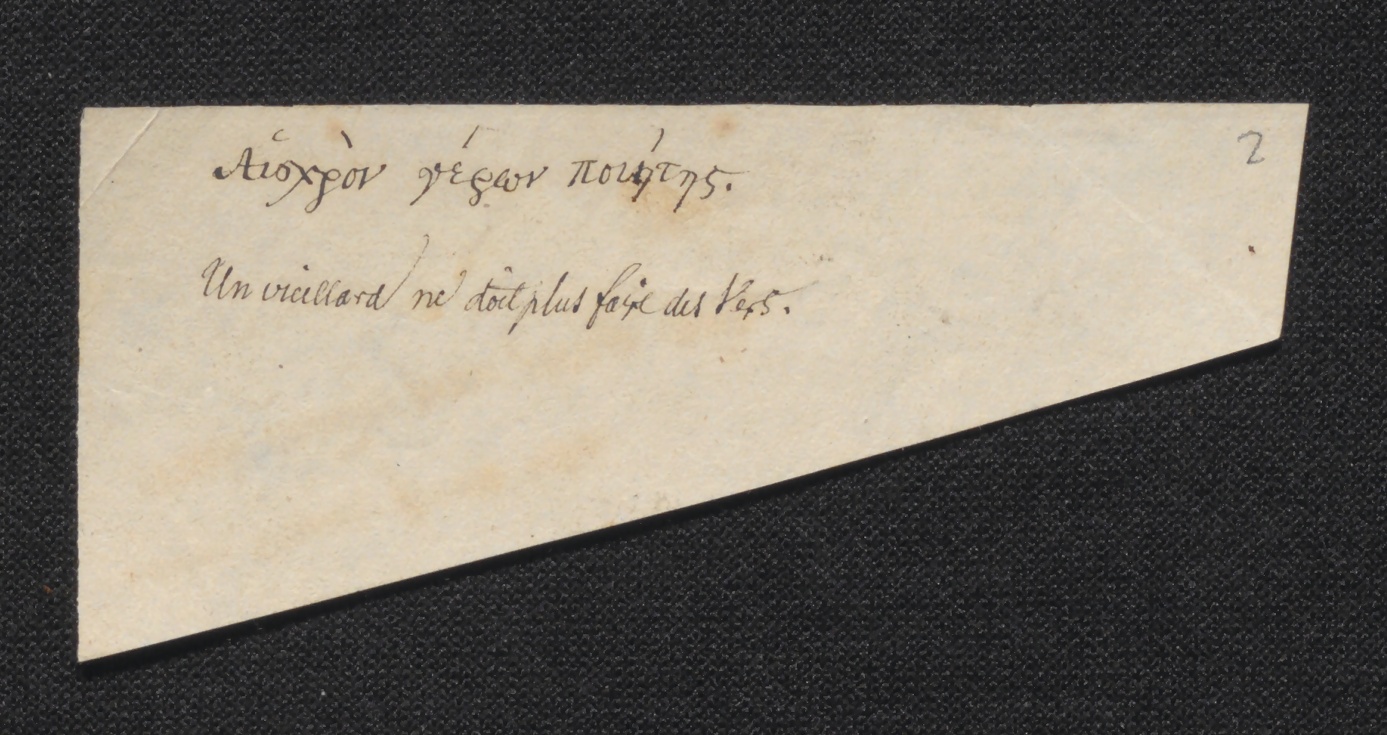 2
Αἰσχρὸν γέρων ποιήτης.
Un vieillard ne doit plus faire des Vers.